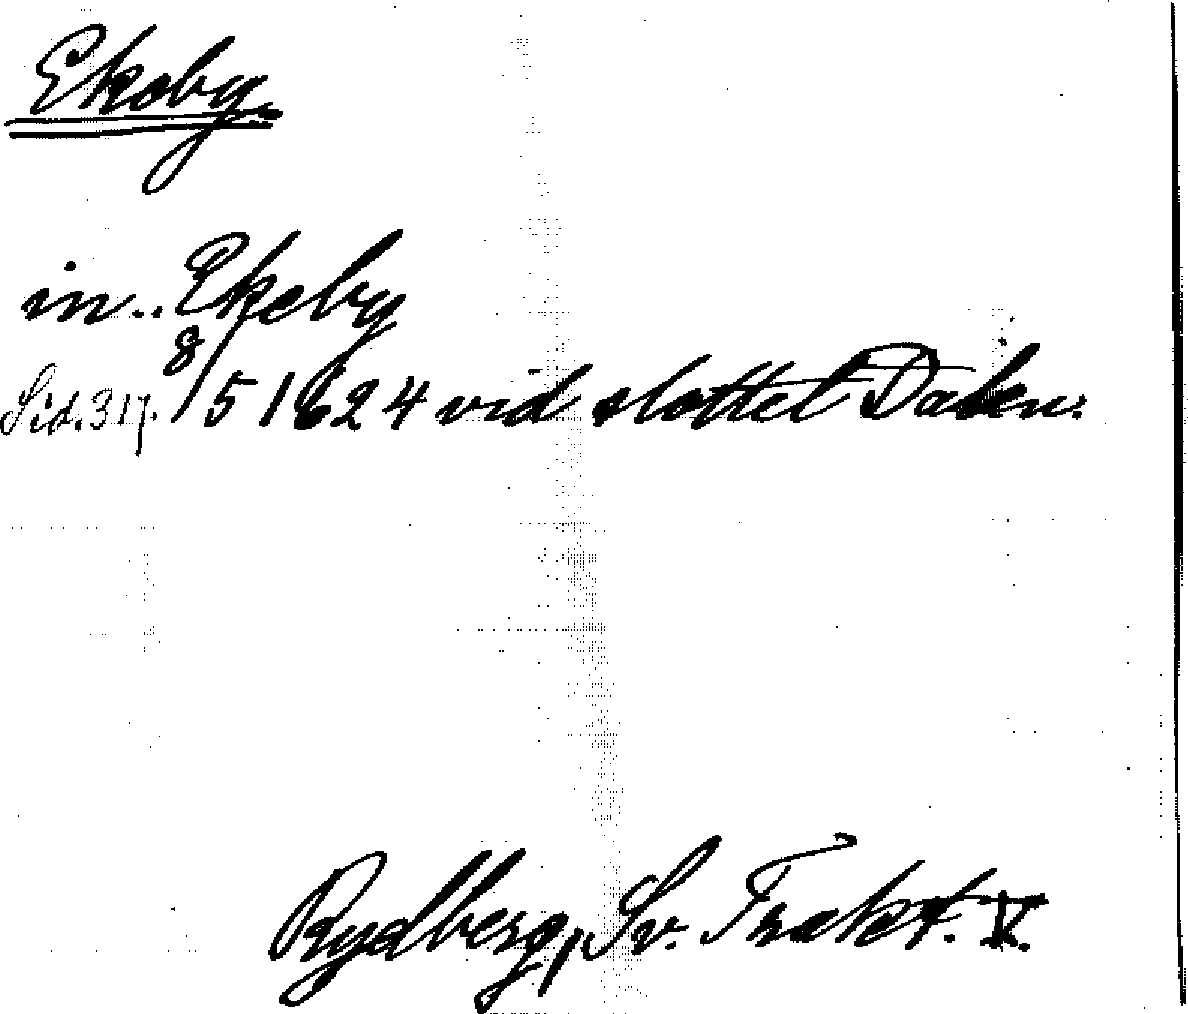 Ekeby.
in.. Ekeby
Sid. 317. 8/5 1624 vid slottet Dalen.
Rydberg, Sv. Trakt. V.